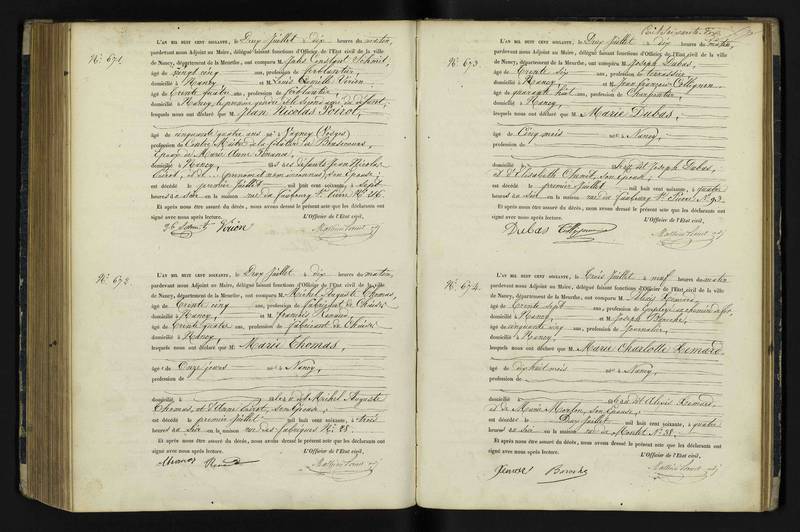 N° 671.
L'AN MIL HUIT CENT SOIXANTE, le Deux Juillet à dix heures du matin,
pardevant nous Adjoint au Maire, délégué faisant fonctions d'Officier de l'Etat civil de la ville
de Nancy, département de la Meurthe, ont comparu M. Jules Constant Schmit,
âgé de vingt cinq ans, profession de ferblantier,
domicilié à Nancy et M. Louis Camille Vivien
âgé de trente quatre ans, profession de ferblantier
domicilié à Nancy, le premier gendre et le second ami du défunt,
lesquels nous ont déclaré que M. Jean Nicolas Poirot,
âgé de cinquante quatre ans né à Vagney (Vosges)
profession de Contre Maître de la filature de
Epoux de Marie Anne
domicilié à Nancy, fils des défunts Jean Nicolas
Poirot, et de (prénom et nom inconnus), son épouse;
est décédé le premier Juillet mil huit cent soixante, à sept
heures du soir en la maison rue du faubourg St. Pierre N° 216.
Et après nous être assuré du décès, nous avons dressé le présent acte que les déclarants ont
signé avec nous après lecture. L'Officier de l'Etat civil,
N° 672.
L'AN MIL HUIT CENT SOIXANTE, le Deux Juillet à dix heures du matin,
pardevant nous Adjoint au Maire, délégué faisant fonctions d'Officier de l'Etat civil de la ville
de Nancy, département de la Meurthe, ont comparu M. Michel Auguste Thomas,
âgé de trente cinq ans, profession de fabricant de
domicilié à Nancy et M. François Renaud
âgé de trente quatre ans, profession de fabricant de
domicilié à Nancy
lesquels nous ont déclaré que M. Marie Thomas,
âgé de onze jours né à Nancy,
profession de
domicilié à fille de Michel Auguste
Thomas, et d'Anne son épouse;
est décédé le premier Juillet mil huit cent soixante, à trois
heures du soir en la maison rue des fabriques N° 28.
Et après nous être assuré du décès, nous avons dressé le présent acte que les déclarants ont
signé avec nous après lecture. L'Officier de l'Etat civil,
Thomas Renaud
N° 673.
L'AN MIL HUIT CENT SOIXANTE, le Deux Juillet à dix heures du matin,
pardevant nous Adjoint au Maire, délégué faisant fonctions d'Officier de l'Etat civil de la ville
de Nancy, département de la Meurthe, ont comparu M. Joseph Dubas,
âgé de trente six ans, profession de terrassier
domicilié à Nancy, et M. Jean François Collignon
âgé de quarante huit ans, profession de Charpentier,
domicilié à Nancy,
lesquels nous ont déclaré que M. Marie Dubas,
âgé de cinq mois né à Nancy,
profession de
domicilié à fille de Joseph Dubas,
et d'Elisabeth son épouse;
est décédé le premier Juillet mil huit cent soixante, à quatre
heures du soir en la maison rue du faubourg St. Pierre N° 93.
Et après nous être assuré du décès, nous avons dressé le présent acte que les déclarants ont
signé avec nous après lecture. L'Officier de l'Etat civil,
Dubas Collignon
N° 674.
L'AN MIL HUIT CENT SOIXANTE, le Trois Juillet à neuf heures du matin
pardevant nous Adjoint au Maire, délégué faisant fonctions d'Officier de l'Etat civil de la ville
de Nancy, département de la Meurthe, ont comparu M. Alexis
âgé de trente sept ans, profession de Employé au chemin de fer,
domicilié à Nancy, et M. Joseph
âgé de cinquante cinq ans, profession de journalier,
domicilié à Nancy,
lesquels nous ont déclaré que M. Marie Charlotte
âgé de dix huit mois né à Nancy,
profession de
domicilié à fille de Alexis
et de Marie son épouse;
est décédé le Deux Juillet mil huit cent soixante, à quatre
heures du soir en la maison rue de Montet N° 38.
Et après nous être assuré du décès, nous avons dressé le présent acte que les déclarants ont
signé avec nous après lecture. L'Officier de l'Etat civil,